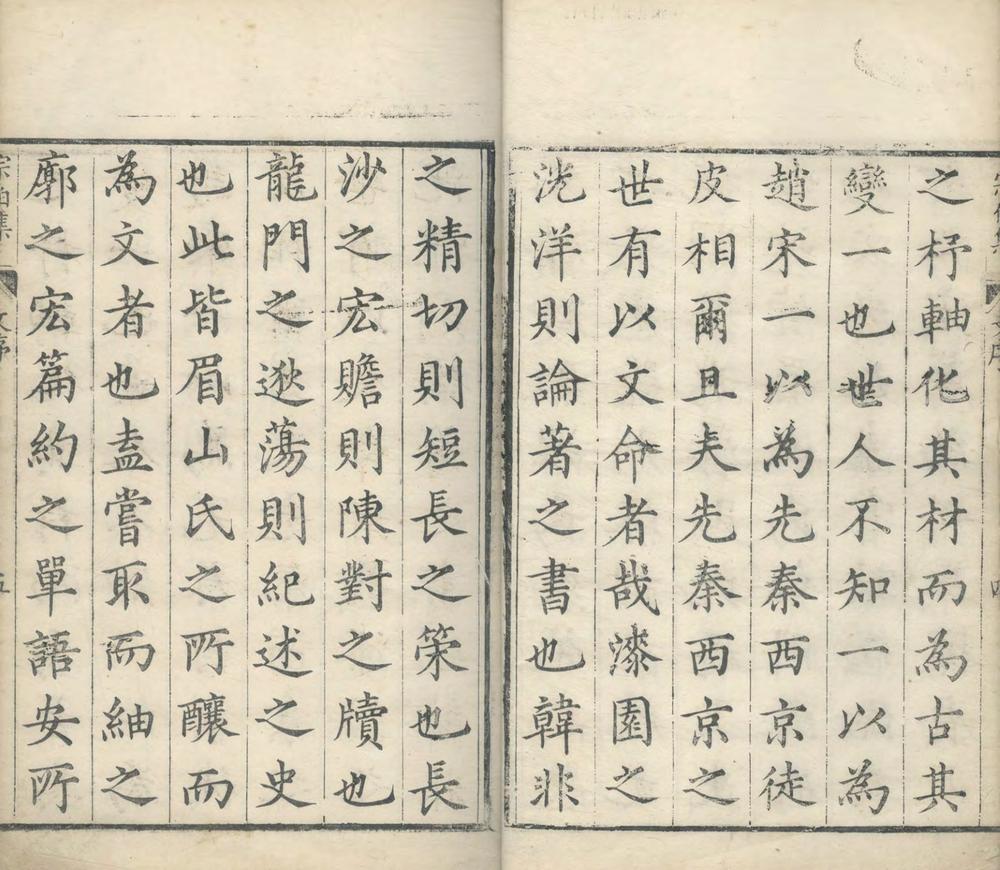 之杼軸化其材而為古其
變一也世人不知一以為
趙宋一以為先秦西京徒
皮相爾且夫先秦西京之
世有以文命者哉漆園之
洸洋則論著之書也韓非
之精切則短長之筞也長
沙之宏贍則陳對之牘也
龍門之逖蕩則紀述之史
也此皆眉山氏之所釀而
為文者也盍嘗取而紬之
廓之宏篇約之單語安所